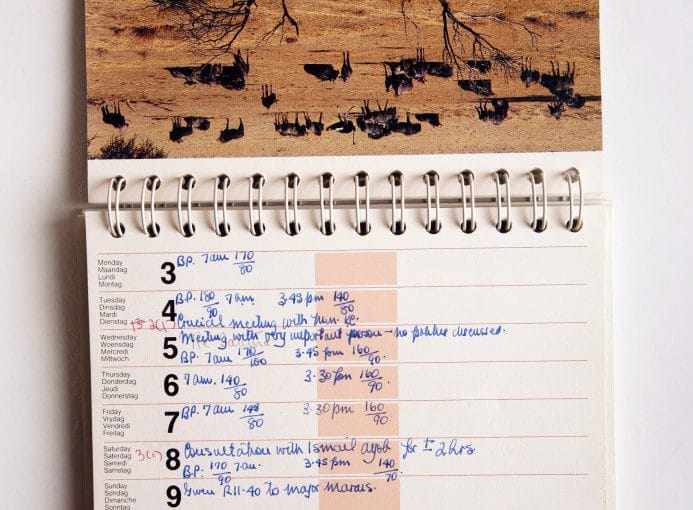 Monday
Maandag
Lundi
Montag
3 BP. 7am 170/80
Tuesday
Dinsdag
Mardi
Dienstag
4 BP. 180/90 7am 3.45pm 140/80
Crucial meeting with
Wednesday
Woensdag
Mercredi
Mittwoch
5 Meeting with very important person – no politics discussed.
BP. 7am 170/100 3.45pm 160/90.
Thursday
Donderdag
Jeudi
Donnerstag
6 7am. 140/80 3.30pm 160/90.
Friday
Vrydag
Vendredi
Freitag
7 BP. 7am 148/80 3.30pm 160/90
Saturday
Saterdag
Samedi
Samstag
3(1) 8 Consultation with Ismail Ayob for 2 hrs.
BP. 170/90 7am. 3.45pm 140/70
Sunday
Sondag
Dimanche
Sonntag
9 Given R11-40 to major Marais.